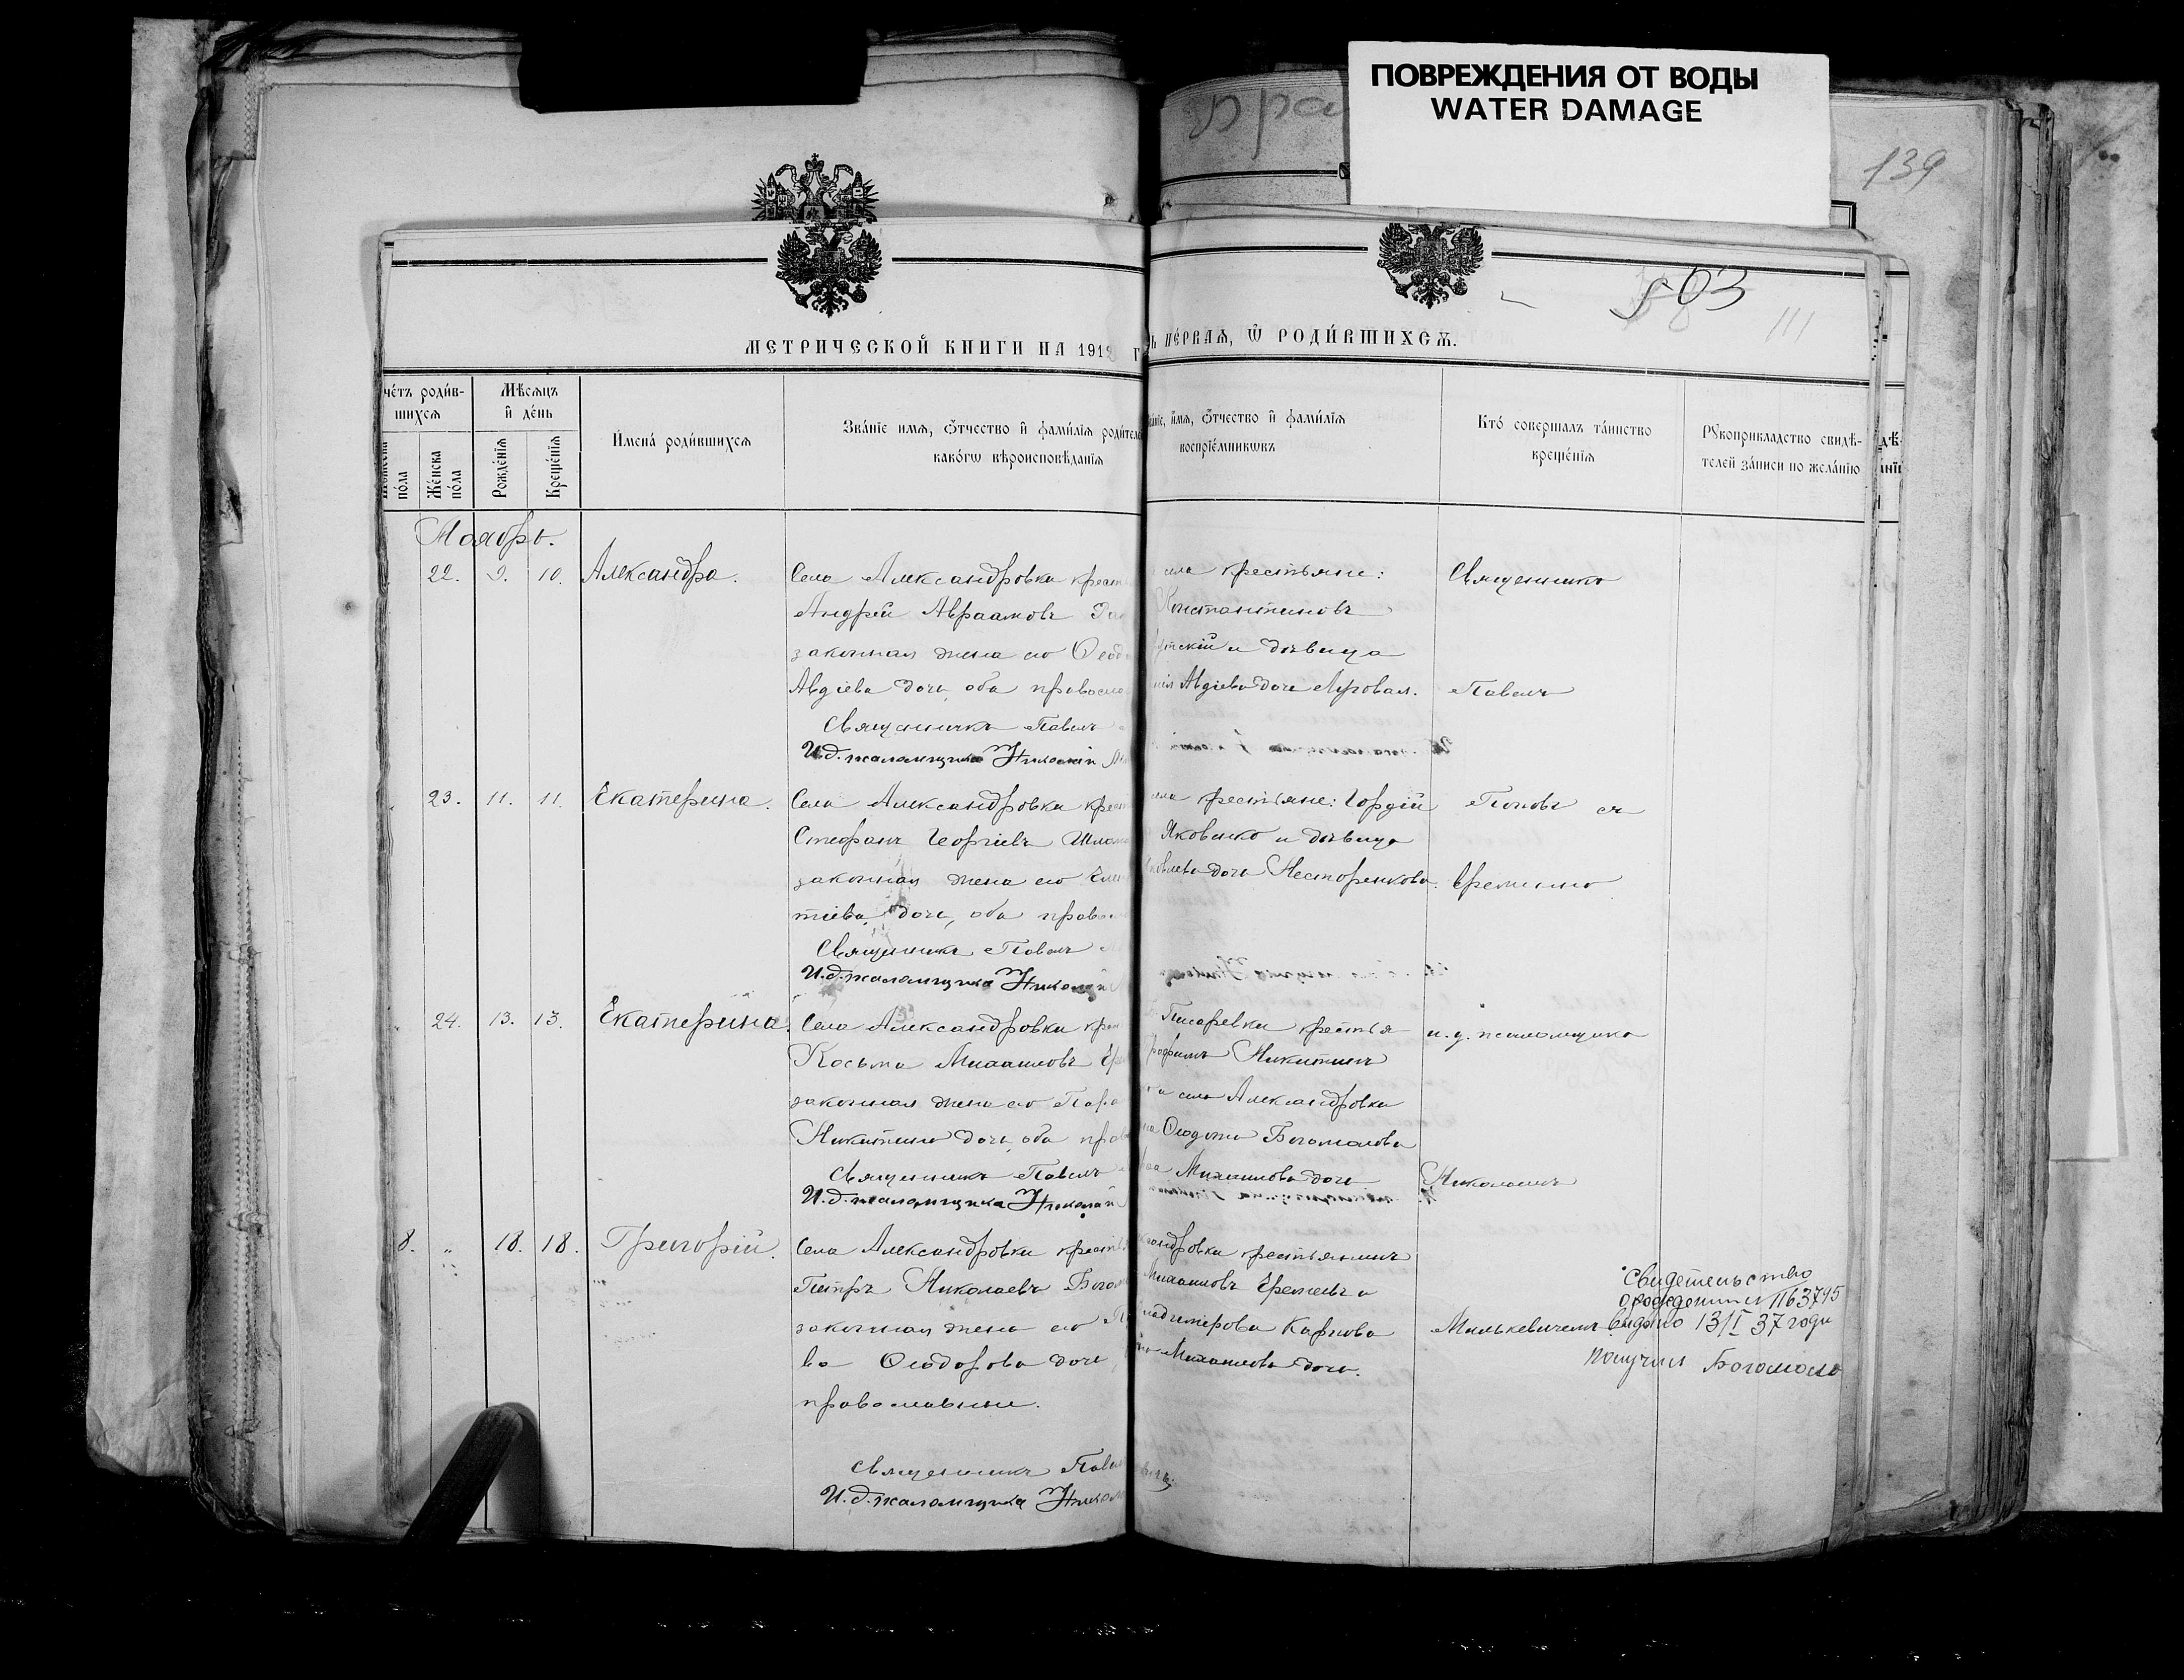 ПОВРЕЖДЕНИЯ ОТ ВОДЫ
WATER DAMAGE
139
503
111
МЕТРИЧЕСКОЙ КНИГИ НА 1912 Г
ПЕ́РВАѦ, Ѿ РОДИ́ВШИХСѦ.
че́тъ роди́в-
шихсѧ
по́ла
Же́нска
по́ла
Мѣ́сѧцъ
и҆ де́нь
Рожде́нїѧ
Креще́нїѧ
И҆мена̀ роди́вшихсѧ
Зва́нїе имѧ, ѻ҆́тчество и҆ фами́лїѧ родителе
како́гѡ вѣроисповѣ́данїѧ
и҆́мѧ, ѻ҆́тчество и҆ фами́лїѧ
воспрїе́мникѡвъ
Кто̀ соверша́лъ та́инство
креще́нїѧ
Рꙋкоприкла́дство свидѣ́-
телей за́писи по жела́нїю
Ноябрь.
22. 9. 10. Александра.
Села Александровки крест
Андрей Авраамовъ
законная жена его Ѳеод
Авдіева дочь, оба правосла
Священникъ Павелъ
И.д. псаломщика Николай
села крестьяне:
Константиновъ
и дѣвица
Авдіева дочь Луговая.
Священникъ
Павелъ
23. 11. 11. Екатерина.
Села Александровки крест
Стефанъ Георгіевъ
законная жена его Еле
тіева дочь, оба право
Священникъ Павелъ
И.д. псаломщика Николай
села крестьяне: Гордій
Яковенко и дѣвица
Яковлева дочь Несторенкова.
Поповъ съ
временно
24. 13. 13. Екатерина.
Села Александровки крес
Косьма Михаиловъ Ере
законная жена его Пара
Никитина дочь, оба прав
Священникъ Павелъ
И.д. псаломщика Николай
Писаревки крестья
Никитинъ
села Александровки
Ѳеодота Богомолова
Михаилова дочь
и. д. псаломщика
Николаемъ
8. " 18. 18. Григорій.
Села Александровки крестья
Петръ Николаевъ Богом
законная жена его
ва Ѳеодорова дочь,
православные.
Священникъ Паве
И.д. псаломщика Никол
сандровки крестьянинъ
Михаиловъ Еремевъ и
Карпова
Михаилова дочь.
Милькевичемъ
Свидетельство
о рождении № 63795
выдано 13/I 37 года
получил Богомоло